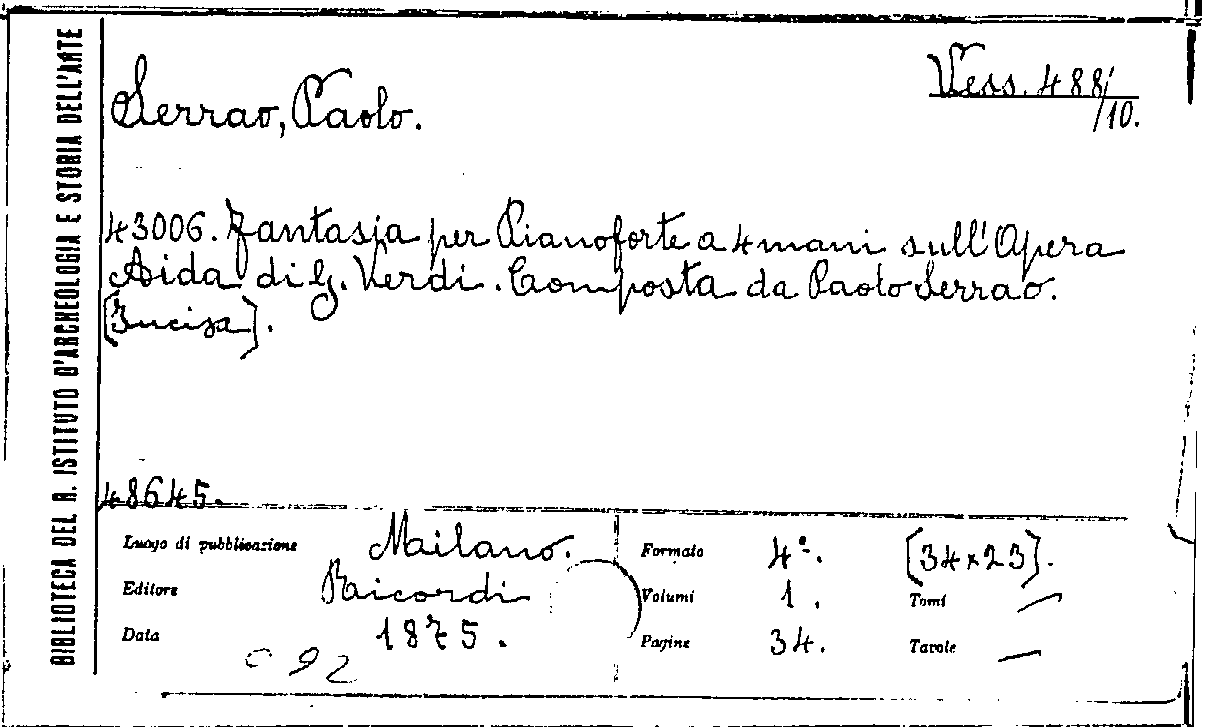 BIBLIOTECA DEL R. ISTITUTO D'ARCHEOLOGIA E STORIA DELL'ARTE
Serrao, Paolo.
Vess. 488/
/10.
43006. Fantasia per Pianoforte a 4 mani sull'Opera
Aida di G. Verdi. Composta da Paolo Serrao.
[Incisa].
48645.
Luogo di pubblicazione Milano.
Editore Ricordi
Data 1875.
092
Formato 4º. [34x23].
Volumi 1. Tomi —
Pagine 34. Tavole —